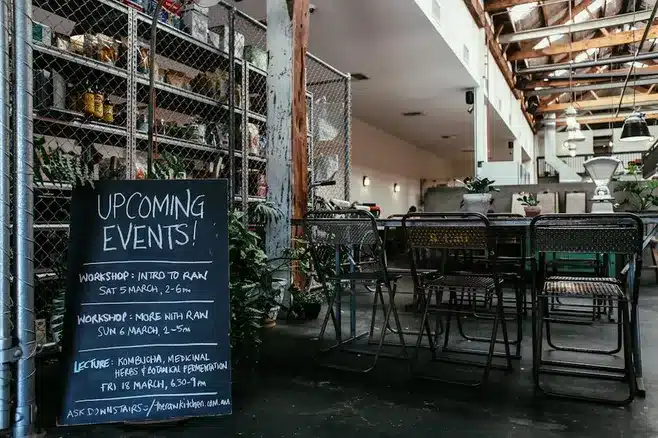 UPCOMING
EVENTS!
WORKSHOP: INTRO TO RAW
SAT 5 MARCH, 2-6PM
WORKSHOP: MORE WITH RAW
SUN 6 MARCH, 1-5PM
LECTURE: KOMBUCHA, MEDICINAL
HERBS & BOTANICAL FERMENTATION
FRI 18 MARCH, 6.30-9PM
ASK DOWNSTAIRS / therawkitchen.com.au